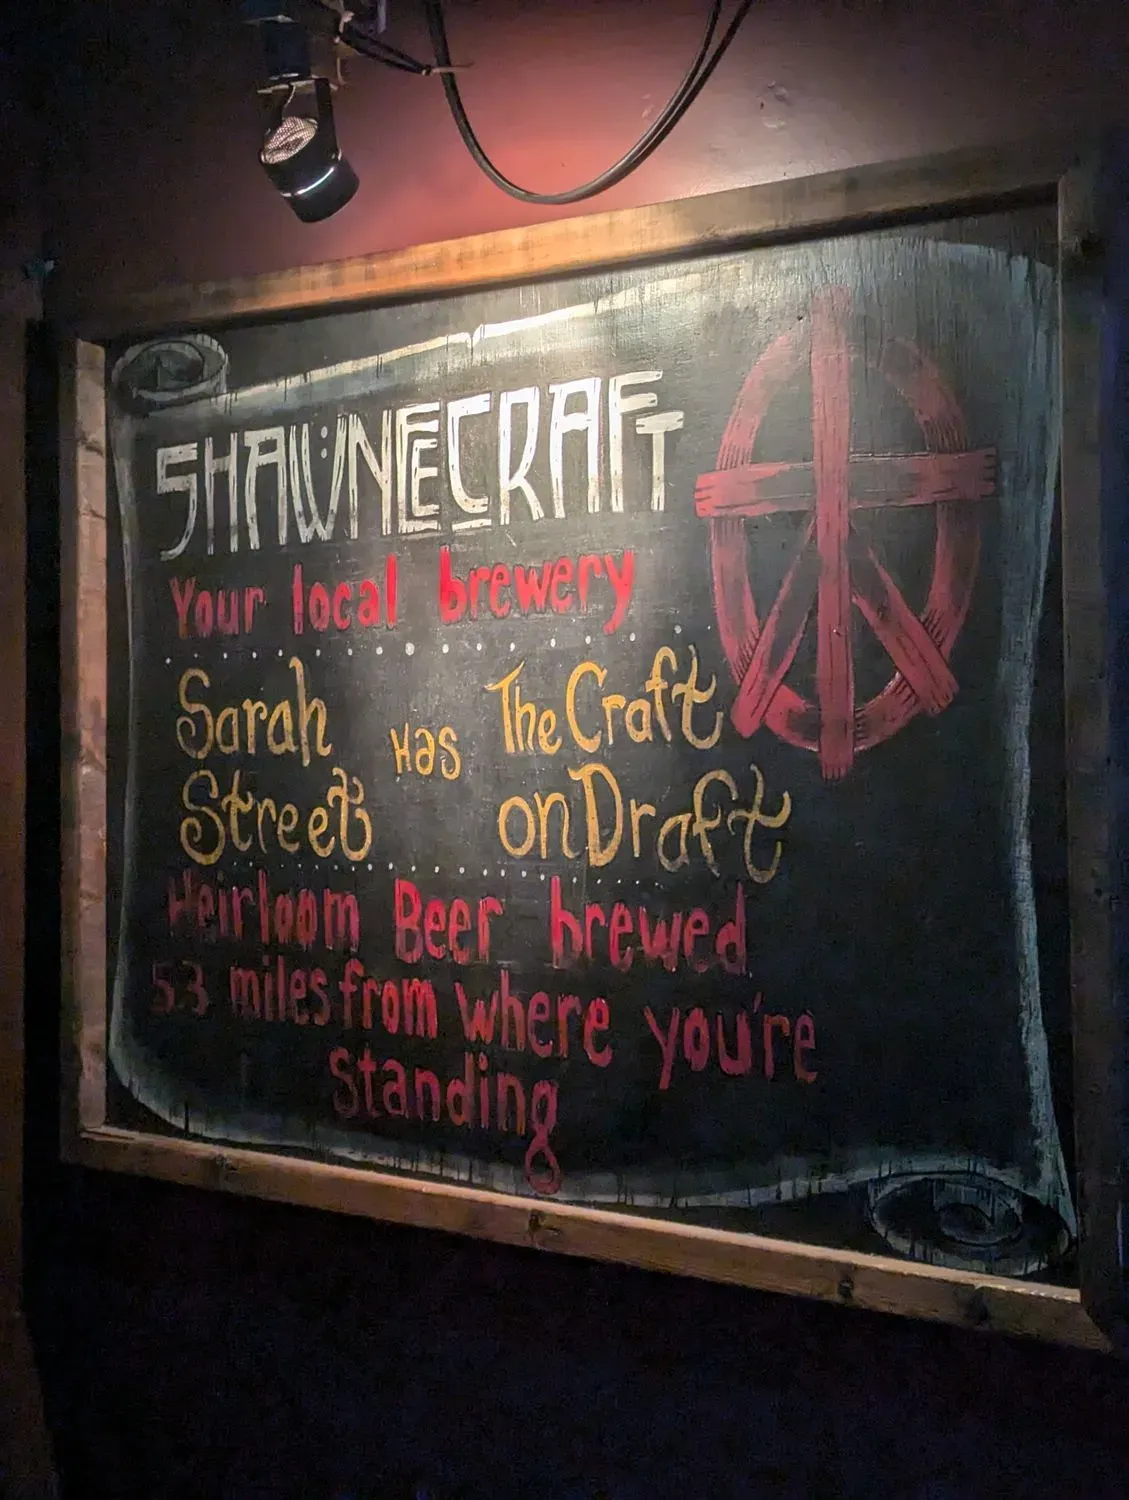 SHAWNECRAFT
Your local brewery
Sarah Street Has The Craft on Draft
Heirloom Beer brewed
5.3 miles from where you're
Standing